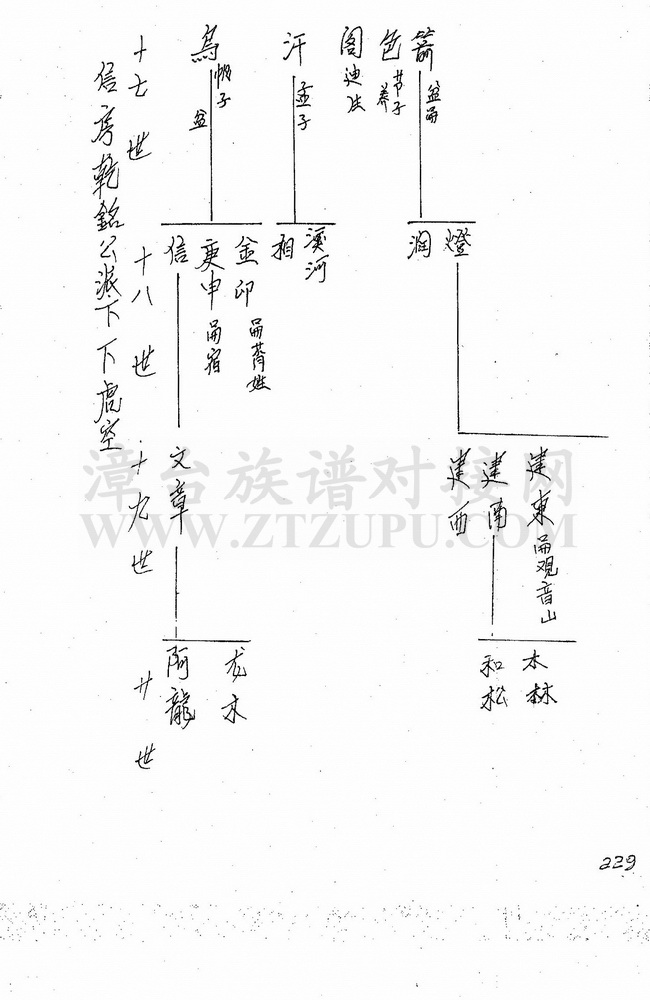 十七世
十八世
十九世
廿世
信房乾銘公派下下虎空
箭
色
节子
养
阁
迪
汗
孟子
烏
帆子
盆
燈
润
溪河
相
金印
庚申
信
建東
观音山
建南
建西
文章
木林
和松
龙木
阿龍
漳台族谱对接网
WWW.ZTZUPU.COM
229